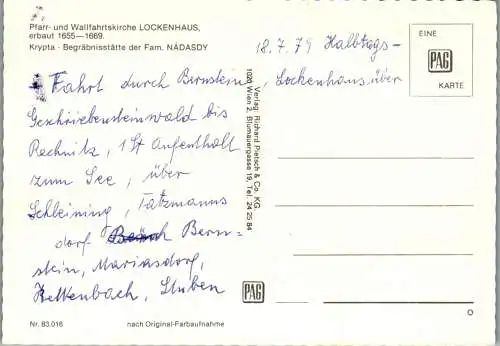 Pfarr- und Wallfahrtskirche LOCKENHAUS,
erbaut 1655—1669.
Krypta · Begräbnisstätte der Fam. NÁDASDY
18.7.79 Halbtags-
Fahrt durch Bernstein, Lockenhaus über
Geschriebensteinwald bis
Rechnitz, 1 St Aufenthalt
zum See, über
Schleining, Tatzmanns
dorf Bern-
stein, Mariasdorf,
Rettenbach, Stuben
EINE
PAG
KARTE
Verlag: Richard Pietsch & Co. KG.
1020 Wien 2, Blumauergasse 19, Tel. 24 25 84
PAG
O
Nr. 83.016
nach Original-Farbaufnahme